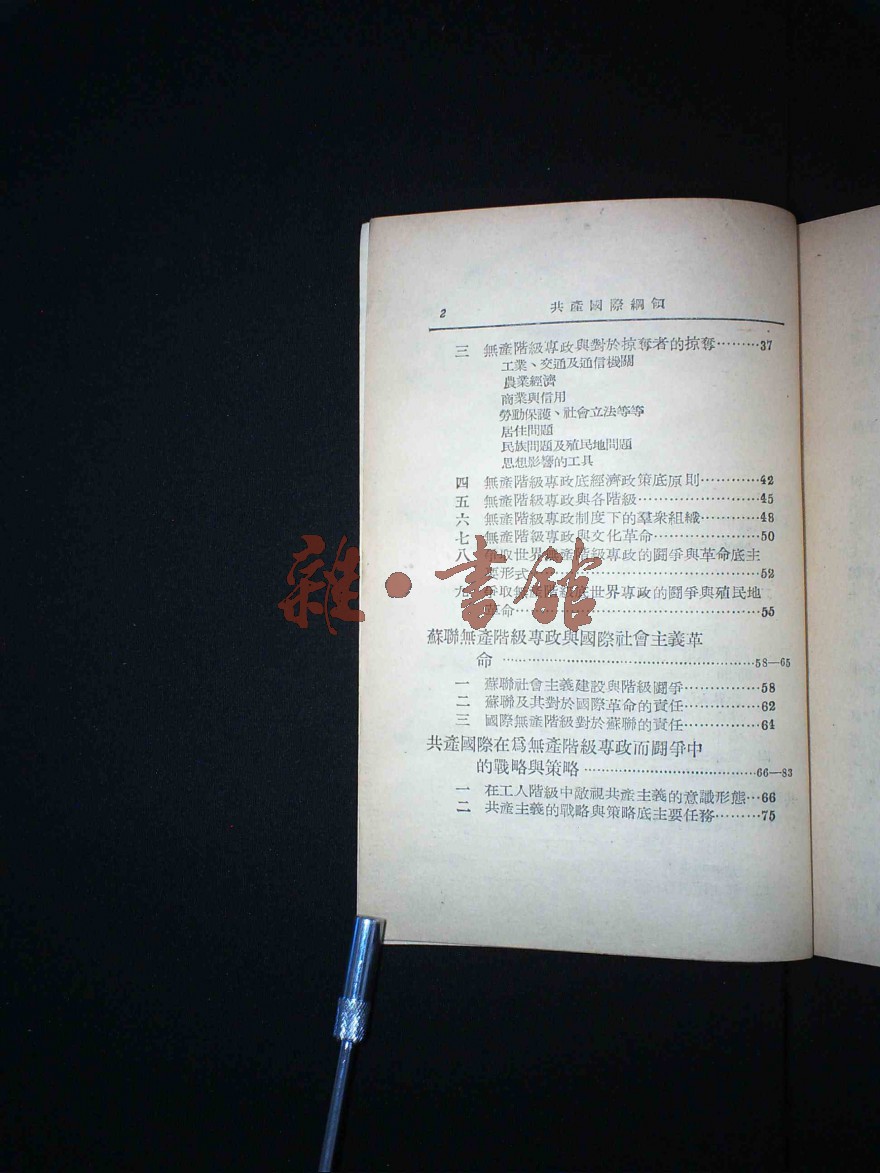 2 共產國際綱領
三 無產階級專政與對於掠奪者的掠奪………37
工業、交通及通信機關
農業經濟
商業與信用
勞動保護、社會立法等等
居住問題
民族問題及殖民地問題
思想影響的工具
四 無產階級專政底經濟政策底原則…………42
五 無產階級專政與各階級……………………45
六 無產階級專政制度下的羣衆組織…………48
七 無產階級專政與文化革命…………………50
八 爭取世界無產階級專政的鬪爭與革命底主
要形式……………………………………52
九 爭取無產階級底世界專政的鬪爭與殖民地
革命………………………………………55
蘇聯無產階級專政與國際社會主義革
命……………………………………………58—65
一 蘇聯社會主義建設與階級鬪爭……………58
二 蘇聯及其對於國際革命的責任……………62
三 國際無產階級對於蘇聯的責任……………64
共產國際在爲無產階級專政而鬪爭中
的戰略與策略………………………………66—83
一 在工人階級中敵視共產主義的意識形態…66
二 共產主義的戰略與策略底主要任務………75
雜·書館